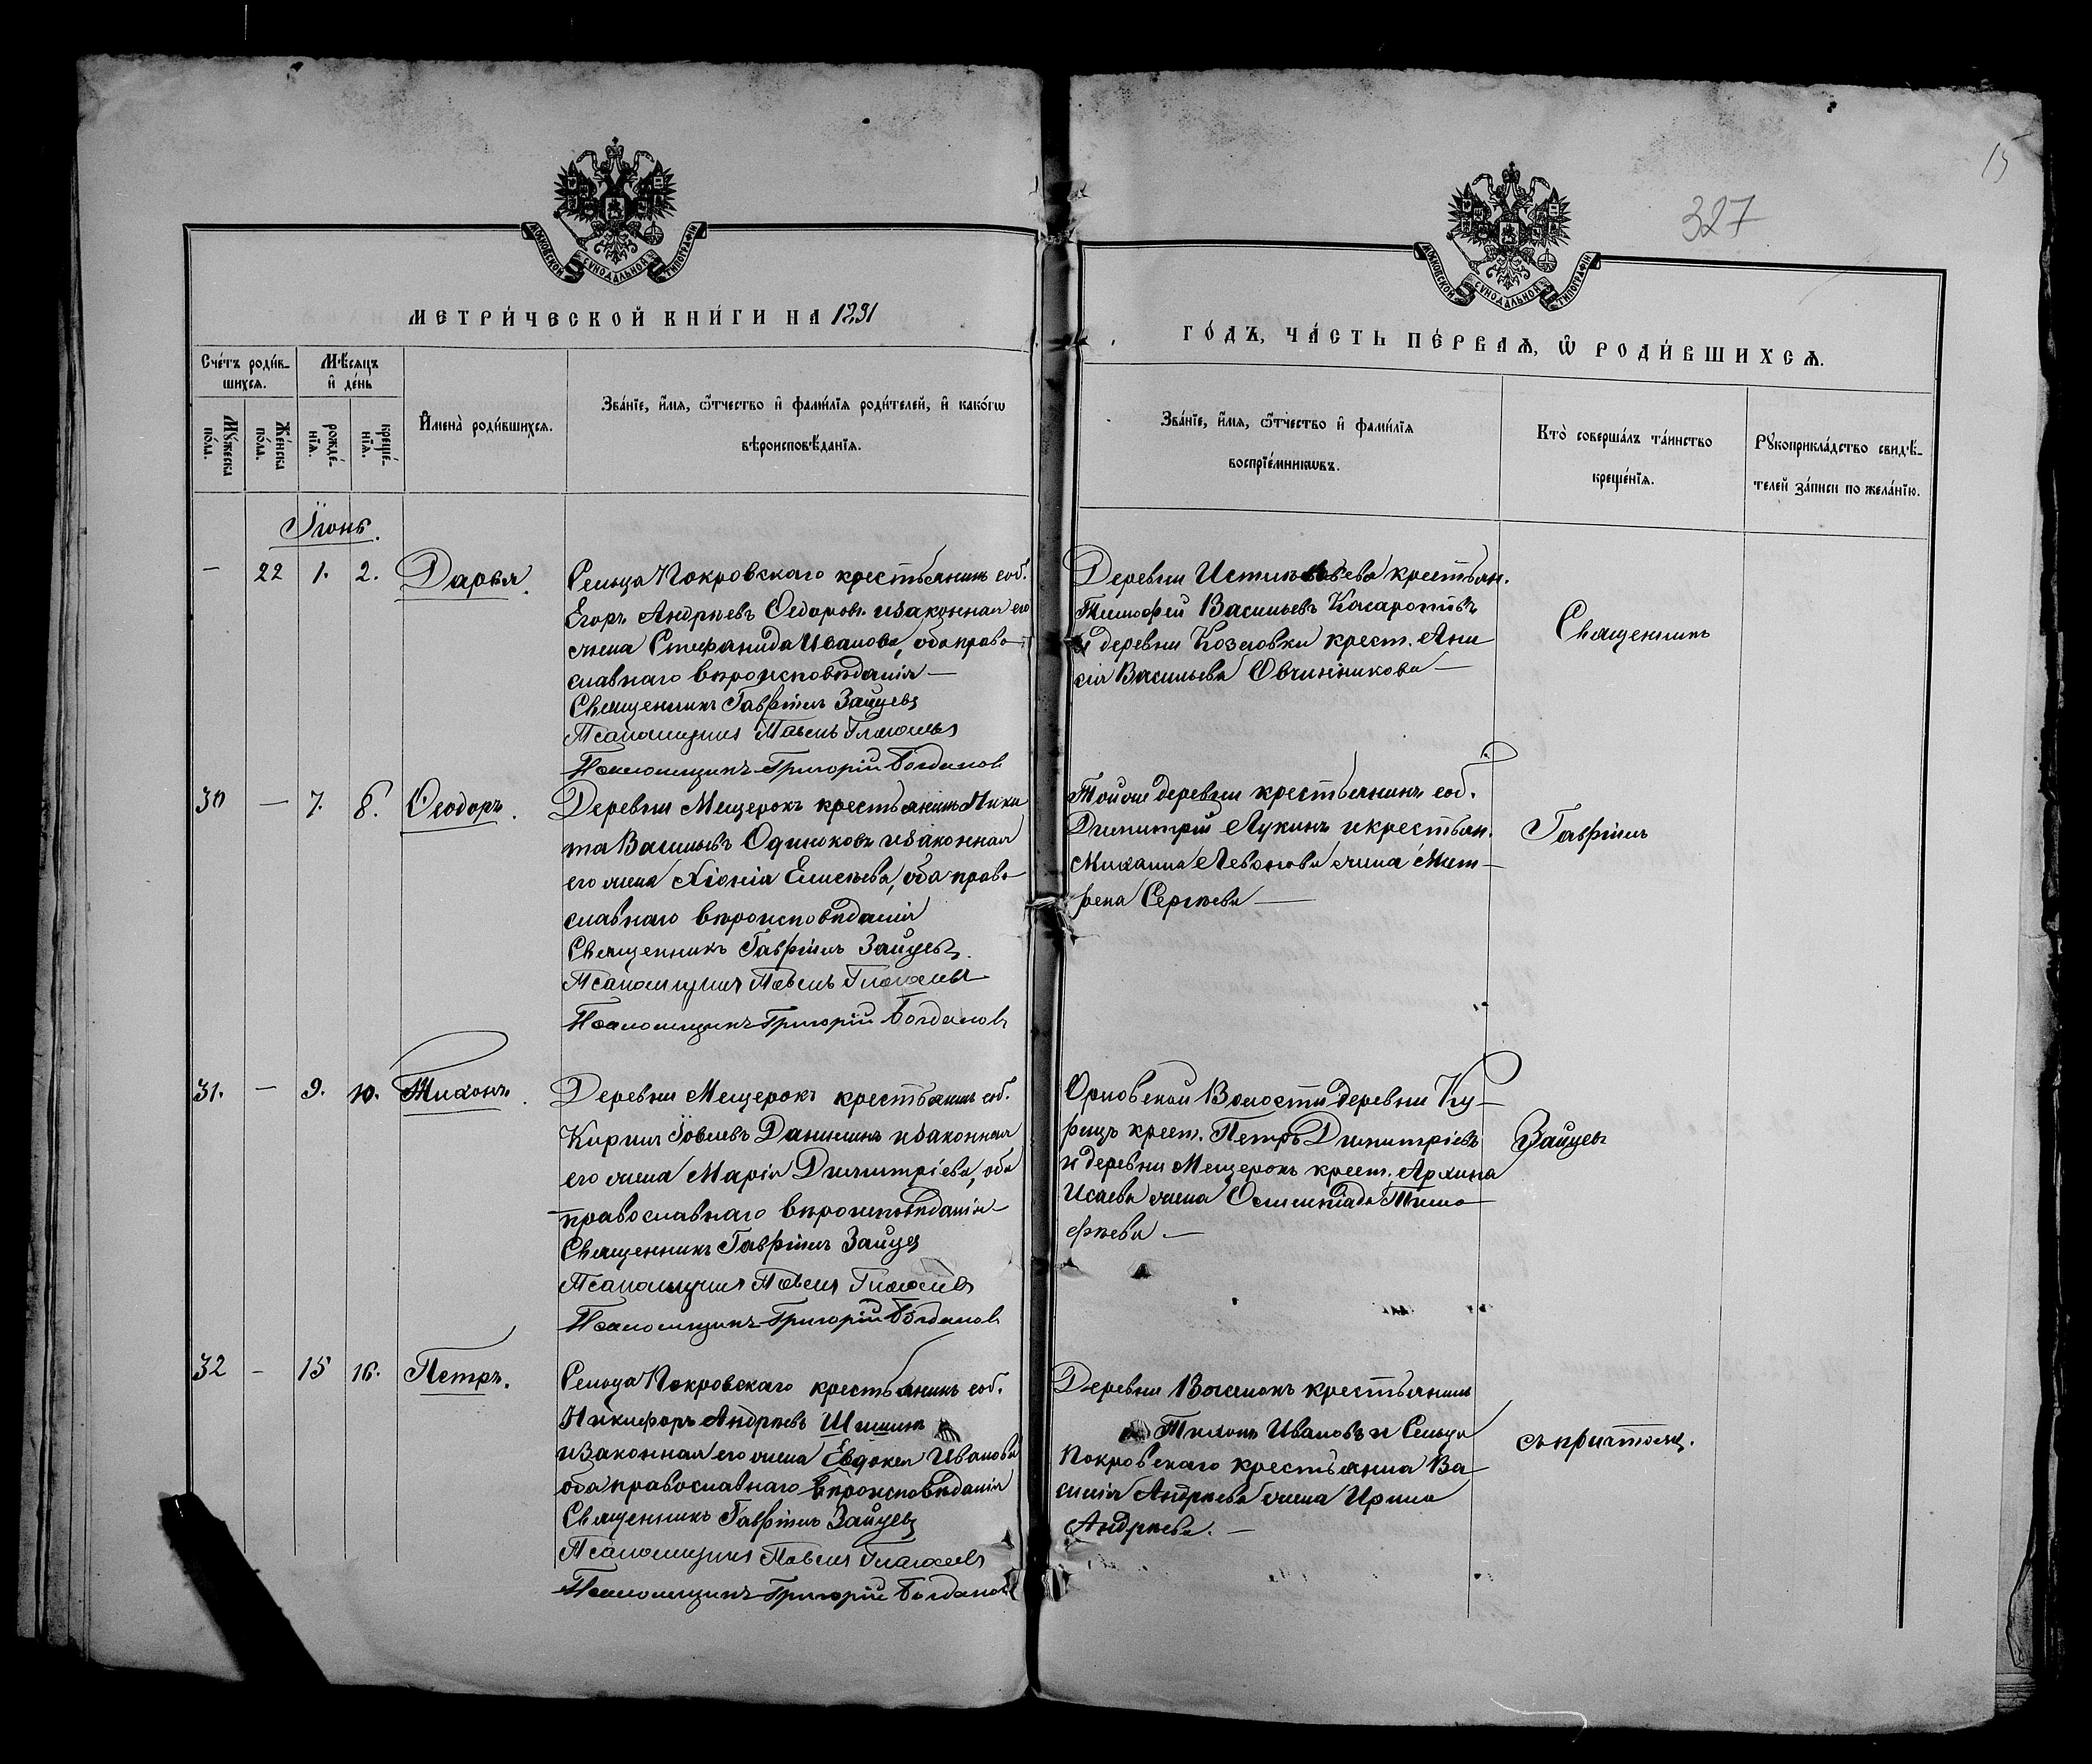 15
327
МОСКОВСКОЙ СѴНОДАЛЬНОЙ ТИПОГРАФІИ
МОСКОВСКОЙ СѴНОДАЛЬНОЙ ТИПОГРАФІИ
МЕТРИ́ЧЕСКОЙ КНИ́ГИ НА 1891
ГО́ДЪ, ЧА́СТЬ ПЕ́РВАѦ, Ѽ РОДИ́ВШИХСѦ.
Сче́тъ роди́в-
шихсѧ.
Мꙋ́жеска
по́ла.
Же́нска
по́ла.
Мѣ́сѧцъ
и҆ де́нь
рожде́-
нїѧ.
креще́-
нїѧ.
И҆мена̀ роди́вшихсѧ.
Зва́нїе, и҆́мѧ, ѻ҆́тчество и҆ фами́лїѧ роди́телей, и҆ како́гѡ
вѣроисповѣ́данїѧ.
Зва́нїе, и҆́мѧ, ѻ҆́тчество и҆ фами́лїѧ
воспрїе́мникѡвъ.
Кто̀ соверша́лъ та́инство
креще́нїѧ.
Рꙋкоприкла́дство свидѣ́-
телей за́писи по жела́нїю.
Іюнь.
— 22 1. 2. Дарья.
Сельца Покровскаго крестьянинъ соб.
Егоръ Андреевъ Ѳедоровъ и законная его
жена Стефанида Иванова, оба право-
славнаго вѣроисповѣданія —
Священникъ Гавріилъ Зайцевъ
Псаломщикъ Павелъ
Псаломщикъ Григорій Богданов
Деревни крестьян.
Тимофей Васильевъ
и деревни Козловки крест. Ани
сія Васильева Овчинникова —
Священникъ
30 — 7. 8. Ѳеодоръ.
Деревни Мещерокъ крестьянинъ Ники
та Васильевъ Одиноковъ и законная
его жена Хіонія Елисѣева, оба право
славнаго вѣроисповѣданія
Священникъ Гавріилъ Зайцевъ.
Псаломщикъ Павелъ
Псаломщикъ Григорій Богданов
Той же деревни крестьянинъ соб.
Димитрій Лукинъ и крестьян.
Михаила Левонова жена Мат-
рена Сергѣева —
Гавріилъ
31. — 9. 10. Тихонъ.
Деревни Мещерокъ крестьянинъ соб.
Кирилъ Іовлевъ Данилинъ и законная
его жена Марія Димитріева, оба
православнаго вѣроисповѣданія
Священникъ Гавріилъ Зайцев
Псаломщикъ Павелъ
Псаломщикъ Григорій Богданов
Орловской Волости деревни Ку-
рицъ крест. Петръ Димитріевъ
и деревни Мещерокъ крест. Архипа
Исаева жена Тимо
фѣева. —
Зайцевъ
32 — 15 16. Петръ.
Сельца Покровскаго крестьянинъ соб.
Никифоръ Андреевъ Шишинъ
и законная его жена Евдокея Иванова
оба православнаго вѣроисповѣданія
Священникъ Гавріилъ Зайцевъ
Псаломщикъ Павелъ
Псаломщикъ Григорій Богданов
Деревни крестьянинъ
Тихонъ Ивановъ и Сельца
Покровскаго крестьянина Ва-
силія Андреева жена Ирина
Андреева. —
съ причтомъ.